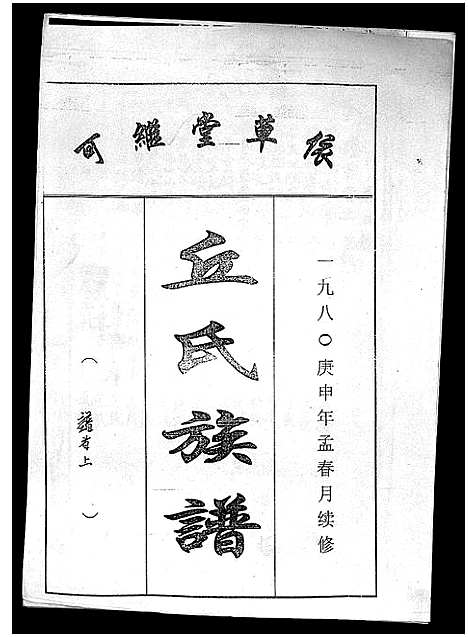 草堂維可
一九八〇庚申年孟春月续修
丘氏族譜
（ 上 ）